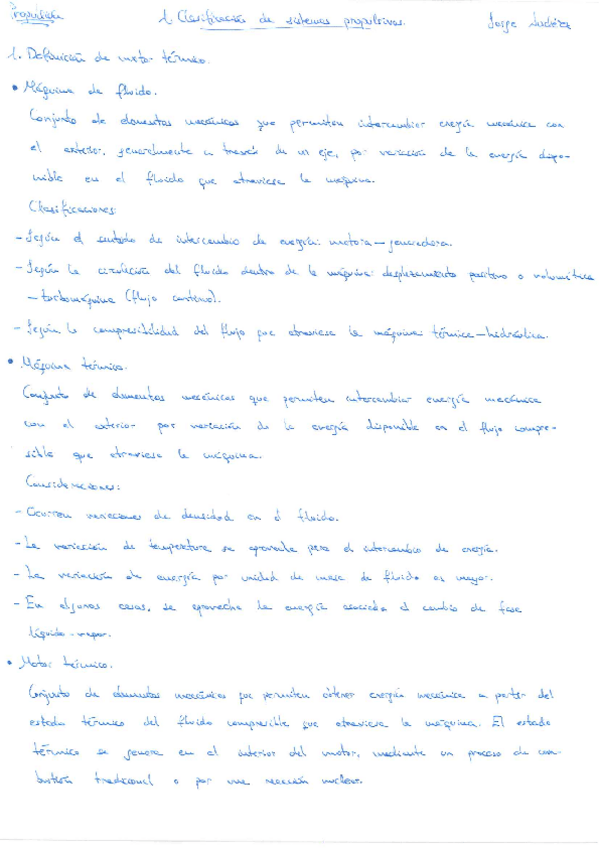 Propulsión
1. Clasificación de sistemas propulsivos.
Jorge
1. Definición de motor térmico.
• Máquina de fluido.
Conjunto de elementos mecánicos que permiten intercambiar energía mecánica con
el exterior, generalmente a través de un eje, por variación de la energía dispo-
nible en el fluido que atraviesa la máquina.
Clasificaciones:
- Según el sentido de intercambio de energía: motora - generadora.
- Según la circulación del fluido dentro de la máquina: desplazamiento positivo o volumétrica
- turbomáquina (flujo continuo).
- Según la compresibilidad del flujo que atraviesa la máquina: térmica - hidráulica.
• Máquina térmica.
Conjunto de elementos mecánicos que permiten intercambiar energía mecánica
con el exterior por variación de la energía disponible en el flujo compre-
sible que atraviesa la máquina.
Consideraciones:
- Ocurren variaciones de densidad en el fluido.
- La variación de temperatura se aprovecha para el intercambio de energía.
- La variación de energía por unidad de masa de fluido es mayor.
- En algunos casos, se aprovecha la energía asociada al cambio de fase
líquido-vapor.
• Motor térmico.
Conjunto de elementos mecánicos que permiten obtener energía mecánica a partir del
estado térmico del fluido compresible que atraviesa la máquina. El estado
térmico se genera en el interior del motor, mediante un proceso de com-
bustión tradicional o por una reacción nuclear.